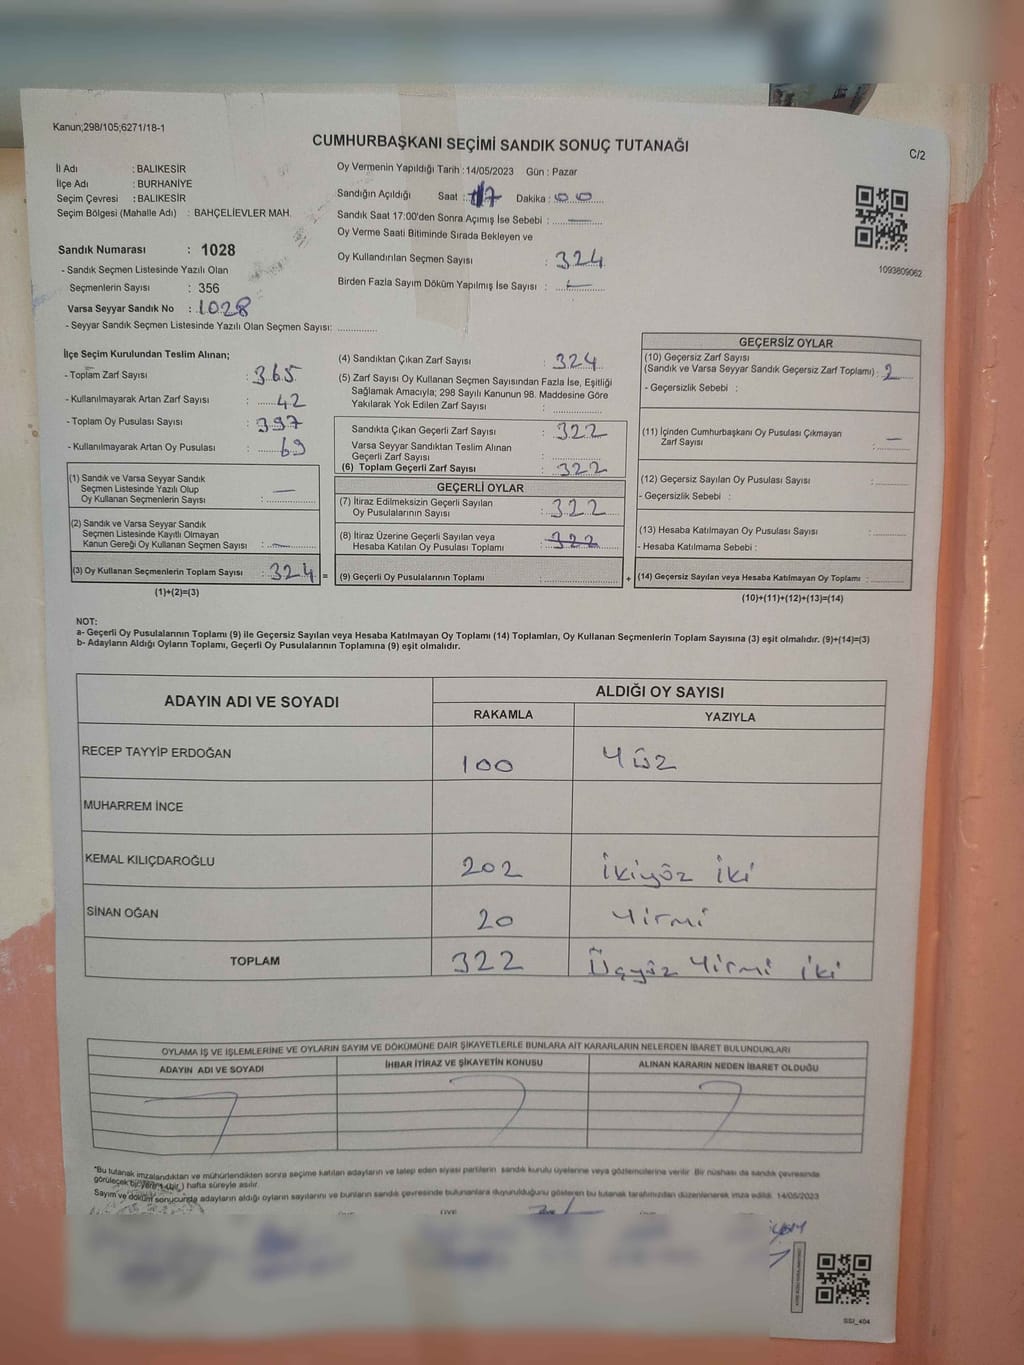 Kanun;298/105;6271/18-1
CUMHURBAŞKANI SEÇİMİ SANDIK SONUÇ TUTANAĞI
C/2
İl Adı : BALIKESİR
İlçe Adı : BURHANİYE
Seçim Çevresi : BALIKESİR
Seçim Bölgesi (Mahalle Adı) : BAHÇELİEVLER MAH.
Sandık Numarası : 1028
- Sandık Seçmen Listesinde Yazılı Olan
Seçmenlerin Sayısı : 356
Varsa Seyyar Sandık No : 1028
- Seyyar Sandık Seçmen Listesinde Yazılı Olan Seçmen Sayısı: ..............
Oy Vermenin Yapıldığı Tarih :14/05/2023 Gün : Pazar
Sandığın Açıldığı Saat : 17 Dakika : 00
Sandık Saat 17:00'den Sonra Açımış İse Sebebi : —
Oy Verme Saati Bitiminde Sırada Bekleyen ve
Oy Kullandırılan Seçmen Sayısı : 324
Birden Fazla Sayım Döküm Yapılmış İse Sayısı : —
1093809062
İlçe Seçim Kurulundan Teslim Alınan;
- Toplam Zarf Sayısı : 365
- Kullanılmayarak Artan Zarf Sayısı : 42
- Toplam Oy Pusulası Sayısı : 397
- Kullanılmayarak Artan Oy Pusulası : 69
(1) Sandık ve Varsa Seyyar Sandık
Seçmen Listesinde Yazılı Olup
Oy Kullanan Seçmenlerin Sayısı : —
(2) Sandık ve Varsa Seyyar Sandık
Seçmen Listesinde Kayıtlı Olmayan
Kanun Gereği Oy Kullanan Seçmen Sayısı : —
(3) Oy Kullanan Seçmenlerin Toplam Sayısı : 324 =
(1)+(2)=(3)
(4) Sandıktan Çıkan Zarf Sayısı : 324
(5) Zarf Sayısı Oy Kullanan Seçmen Sayısından Fazla İse, Eşitliği
Sağlamak Amacıyla; 298 Sayılı Kanunun 98. Maddesine Göre
Yakılarak Yok Edilen Zarf Sayısı : ..............
Sandıkta Çıkan Geçerli Zarf Sayısı : 322
Varsa Seyyar Sandıktan Teslim Alınan
Geçerli Zarf Sayısı : ..............
(6) Toplam Geçerli Zarf Sayısı : 322
GEÇERLİ OYLAR
(7) İtiraz Edilmeksizin Geçerli Sayılan
Oy Pusulalarının Sayısı : 322
(8) İtiraz Üzerine Geçerli Sayılan veya
Hesaba Katılan Oy Pusulası Toplamı : 322
(9) Geçerli Oy Pusulalarının Toplamı : .............. +
GEÇERSİZ OYLAR
(10) Geçersiz Zarf Sayısı
(Sandık ve Varsa Seyyar Sandık Geçersiz Zarf Toplamı) : 2
- Geçersizlik Sebebi :
(11) İçinden Cumhurbaşkanı Oy Pusulası Çıkmayan
Zarf Sayısı : —
(12) Geçersiz Sayılan Oy Pusulası Sayısı : ..........
- Geçersizlik Sebebi :
(13) Hesaba Katılmayan Oy Pusulası Sayısı : ..........
- Hesaba Katılmama Sebebi :
(14) Geçersiz Sayılan veya Hesaba Katılmayan Oy Toplamı : ..........
(10)+(11)+(12)+(13)=(14)
NOT:
a- Geçerli Oy Pusulalarının Toplamı (9) ile Geçersiz Sayılan veya Hesaba Katılmayan Oy Toplamı (14) Toplamları, Oy Kullanan Seçmenlerin Toplam Sayısına (3) eşit olmalıdır. (9)+(14)=(3)
b- Adayların Aldığı Oyların Toplamı, Geçerli Oy Pusulalarının Toplamına (9) eşit olmalıdır.
ADAYIN ADI VE SOYADI
ALDIĞI OY SAYISI
RAKAMLA YAZIYLA
RECEP TAYYİP ERDOĞAN 100 Yüz
MUHARREM İNCE
KEMAL KILIÇDAROĞLU 202 İkiyüz iki
SİNAN OĞAN 20 Yirmi
TOPLAM 322 Üçyüz Yirmi iki
OYLAMA İŞ VE İŞLEMLERİNE VE OYLARIN SAYIM VE DÖKÜMÜNE DAİR ŞİKAYETLERLE BUNLARA AİT KARARLARIN NELERDEN İBARET BULUNDUKLARI
ADAYIN ADI VE SOYADI İHBAR İTİRAZ VE ŞİKAYETİN KONUSU ALINAN KARARIN NEDEN İBARET OLDUĞU
*Bu tutanak imzalandıktan ve mühürlendikten sonra seçime katılan adayların ve talep eden siyasi partilerin sandık kurulu üyelerine veya gözlemcilerine verilir. Bir nüshası da sandık çevresinde
görülecek bir yere 1 (bir) hafta süreyle asılır.
Sayım ve döküm sonucunda adayların aldığı oyların sayılarını ve bunların sandık çevresinde bulunanlara duyurulduğunu gösteren bu tutanak tarafımızdan düzenlenerek imza edildi. 14/05/2023
SSI_404